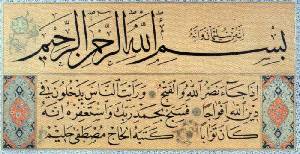 بسم الله الرحمن الرحيم
إذا جاء نصر الله والفتح ورأيت الناس يدخلون في
دين الله أفواجا فسبح بحمد ربك واستغفره إنه
كان توابا كتبه الحاج مصطفى حليم